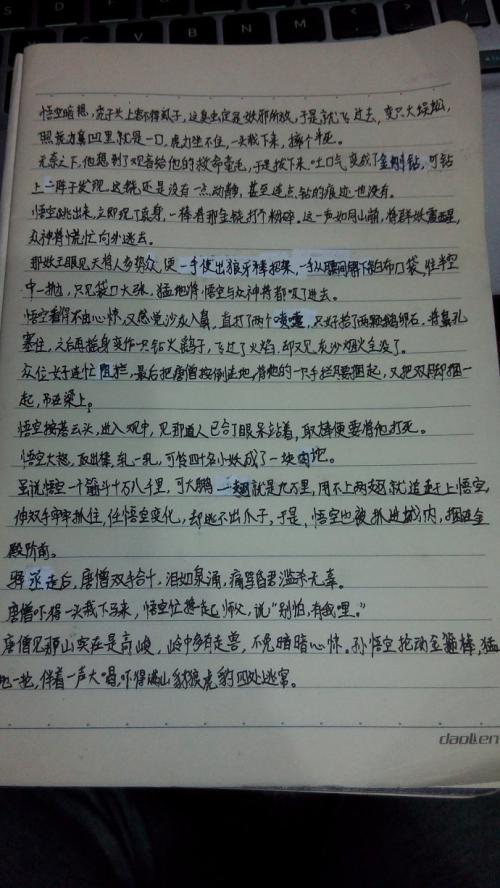 悟空暗想，秃子头上容不得虱子，这臭虫定是妖邪所放，于是就飞过去，变只大蜈蚣，
照鼻凹里就是一口，虎力坐不住，一头栽下来，摔个半死。
无奈之下，他想到了观音给他的救命毫毛，于是拔下来吐口气变成了金刚钻，可钻
上一阵子发现，这铙还是没有一点动静，甚至连点钻的痕迹也没有。
悟空跳出来，立即现了真身，一棒将那金铙打个粉碎。这一声如同山崩，将群妖震醒，
众神将慌忙向外逃去。
那妖王眼见天将人多势众，便一手使出狼牙棒招架，一手从腰间解下白布口袋，往半空
中一抛，只见袋口大张，猛地将悟空与众神将都收了进去。
悟空看得不由心惊，又感觉沙灰入鼻，直打了两个喷嚏，只好拾了两颗鹅卵石，将鼻孔
塞住，之后再摇身变作一只钻火鹞子，飞过了火焰，却又见灰沙烟火全没了。
众位女子连忙阻拦，最后把唐僧按倒在地，将他的一只手拦腰捆起，又把双脚捆一
起，吊在梁上。
悟空按落云头，进入观中，见那道人已合了眼呆站着，取棒便要将他打死。
悟空大怒，取出棒，乱一乱，可怜四十名小妖成了一块肉地。
虽说悟空一个筋斗十万八千里，可大鹏一翅就是九万里，用不上两翅就追赶上悟空，
伸双手牢牢抓住，任悟空变化，却逃不出爪子，于是，悟空也被抓进城内，捆在金
殿阶前。
驿丞走后，唐僧双手合十，泪如泉涌，痛骂昏君滥杀无辜。
唐僧吓得一头栽下马来，悟空忙搀起师父，说“别怕，有我哩。”
唐僧见那山实在是高峻，岭中多有走兽，不免暗暗心惊。孙悟空抡动金箍棒，猛
地一抡，伴着一声大喝，吓得满山豺狼虎豹四处逃窜。